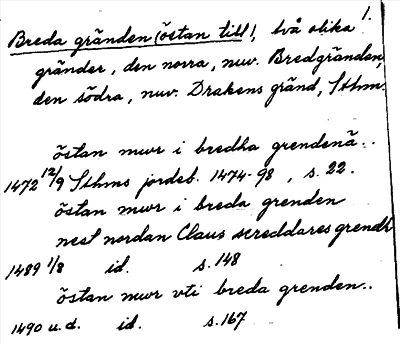 1.
Breda gränden (östan till), två olika
gränder, den norra, nuv. Bredgränden,
den södra, nuv. Drakens gränd, Sthm.
östan mwr i bredha grendenä..
1472 12/9 Sthms jordeb. 1474-98, s. 22.
östan mwr i breda grenden
nest nordan Claus screddares grendh
1489 1/8 id. s. 148
östan mwr vti breda grenden..
1490 u.d. id. s. 167